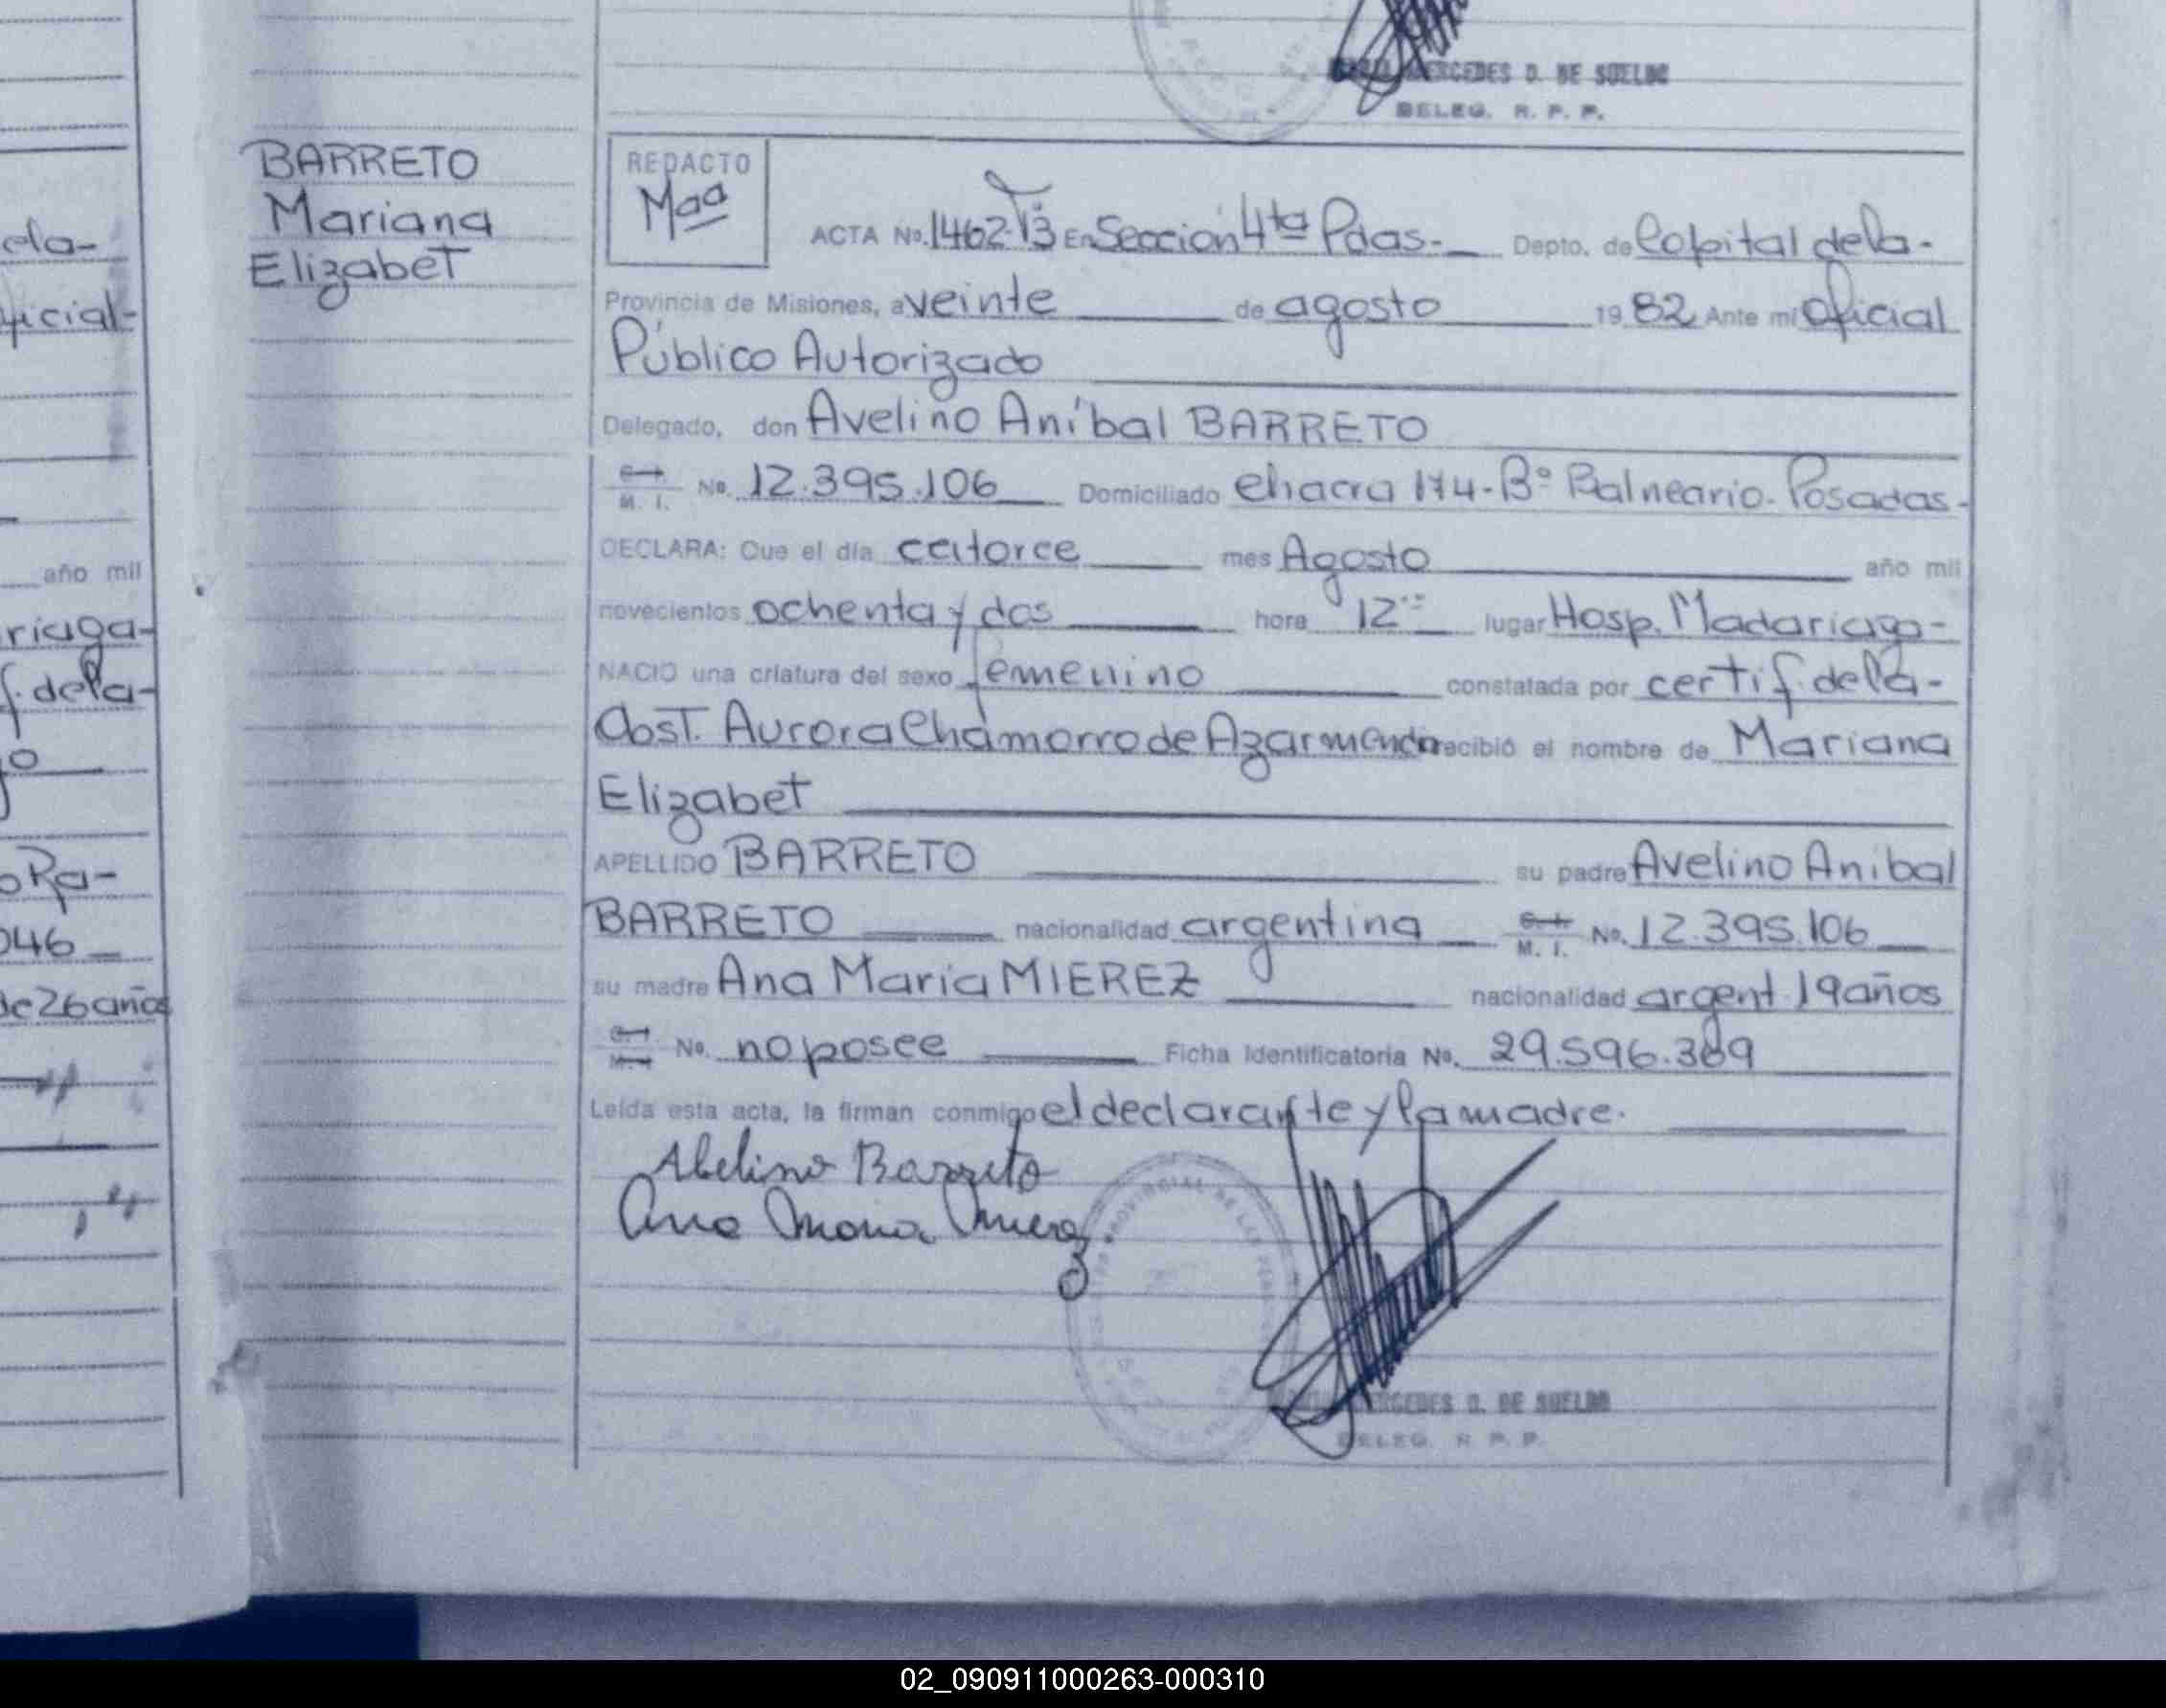 MERCEDES D. DE SUELDO
DELEG. R. P. P.
BARRETO
Mariana
Elizabet
REDACTO
ACTA No. 1462 T3 En Sección 4ta Pdas.- Depto. de Capital dela-
Provincia de Misiones, a veinte de agosto 19 82 Ante mi Oficial
Público Autorizado
Delegado, don Avelino Aníbal BARRETO
M. I. No. 12.395.106 Domiciliado chacra 174-Bº Balneario-Posadas-
DECLARA: Que el día catorce mes Agosto año mil
novecientos ochenta y dos hora 12 lugar Hosp. Madariaga-
NACIO una criatura del sexo femenino constatada por certif. dela-
Obst. Aurora Chamorro de Azarmendia recibió el nombre de Mariana
Elizabet
APELLIDO BARRETO su padre Avelino Anibal
BARRETO nacionalidad argentina M. I. No. 12.395.106
su madre Ana María MIEREZ nacionalidad argent. 19 años
No. no posee Ficha Identificatoria No. 29.596.389
Leída esta acta, la firman conmigo el declarante y la madre.
Abelino Barreto
Ana Maria Mierez
MERCEDES D. DE SUELDO
DELEG. R. P. P.
ela-
ficial-
año mil
riaga-
f. dela-
o
o Ra-
046
de 26 años
02_090911000263-000310